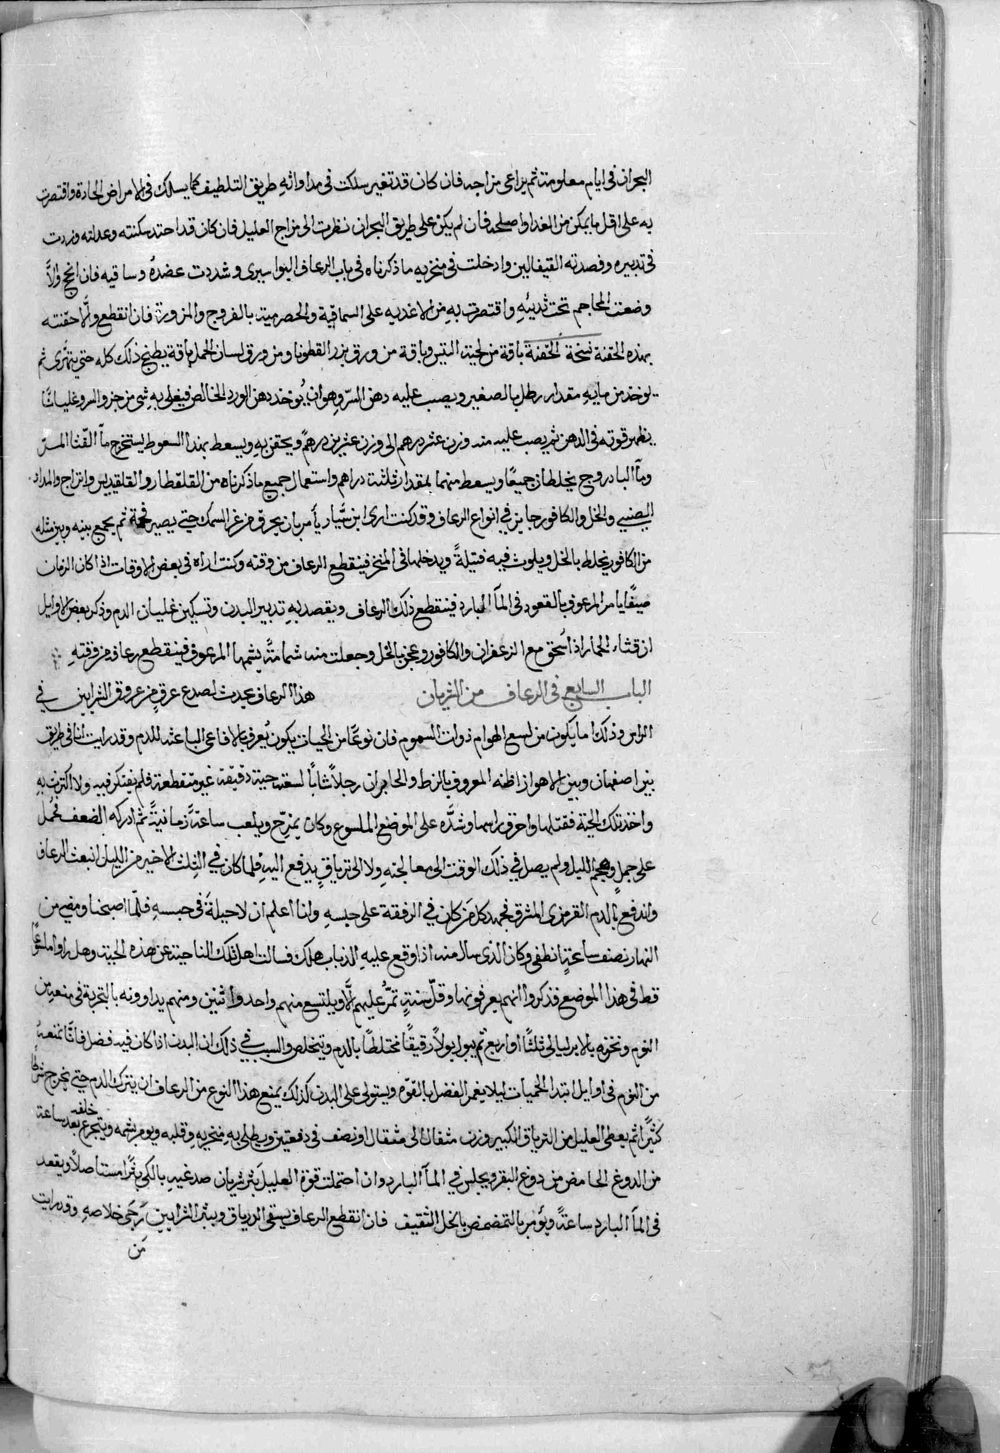 البحران في ايام معلومة ثم يراعى مزاجه فان كان قد تغير سلكت في مداواته طريق التلطيف كما يسلك في الامراض الحادة واقتصرت
به على اقل ما يمكن من الغدا واصلحه فان لم يكن على طريق البحران نظرت الى مزاج العليل فان كان قد احتد سكنته وعدلته وزدت
في تدبيره وفصدته القيفالين وادخلت في منخريه ما ذكرناه في باب الرعاف البواسيرى وشددت عضده وساقيه فان انجح والّا
وضعت المحاجم تحت ثدييه واقتصرت به من الاغديه على السماقية والحصرمية بالفروج والمزورة فان انقطع والّا حقنته
بهذه الحقنة نسخة الحقنة باقة من لحية التيس وباقة من ورق بزر القطونا ومن ورق لسان الحمل باقة يطبخ ذلك كله حتى يتهرى ثم
يوخذ من مايه مقدار رطل بالصغير ويصب عليه دهن السرو وهو ان يُوخذ دهن الورد الخالص فيغلى به شي من جزو السرو غليانًا
يظهر قوته في الدهن ثم يصب عليه منه وزن عشر درهم الى وزن عشرين درهمًا ويحقن به ويسعط بهذا السعوط يستخرج مآ القثا المر
ومآ البادروج يخلطان جميعًا ويسعط منهما بمقدار ثلثة دراهم واستعمال جميع ما ذكرناه من القلقطار والقلقديس والزاج والمداد
الصيني والخل والكافور جايز في انواع الرعاف وقد كنت ارى ابن سيّار يأمر بان يحرق غز السمك حتى يصير فحمة ثم يجمع بينه وبين مثله
من الكافور يخلط بالخل ويلوث فيه فتيلةً ويدخلها في المنخر فينقطع الرعاف من وقته وكنت اراه في بعض الاوقات اذا كان الزمان
صيفًا يامر المرعوف بالقعود في المآ البارد فينقطع ذلك الرعاف ويقصد به تدبير البدن وتسكين غليان الدم وذكر بعض الاوايل
ان قثاء الحمار اذا سُحق مع الزعفران والكافور وعجن بالخل وجعلت منه شمامةً يشمها المرعوف فينقطع رعافه من وقته
الباب السابع في الرعاف من الشريان هذا الرعاف يحدث لصدع عرقٍ من عروق الشرايين في
الراس وذلك اما يكون من لسع الهوام ذوات السموم فان نوعًا من الحيات يكون يُعرف بالافاعي الباعثة للدم وقد رايت انا في طريق
بين اصفهان وبين الاهواز اظنه المعروف بالزط والخابران رجلاً شابًا لسعته حية دقيقة غير متقطعة فلم يفتكر فيه ولا اكترث به
واخذ تلك الحية فقتلها واحرق راسها وشدَّه على الموضع الملسوع وكان يمزح ويلعب ساعةً زمانيةً ثم ادركه الضعف فحُمل
على جمل وهجم الليل ولم يصل في ذلك الوقت الى معالجته ولا الى ترياقٍ يدفع اليه فلما كان في الثلث الاخير من الليل انبعث الرعاف
واندفع بالدم القرمزي المشرق فجهد كل من كان في الرفقة على حبسه وانا اعلم ان لا حيلة في حبسه فلمّا اصبحنا ومضي من
النهار نصف ساعةٍ انطفى وكان الذي سال منه اذا وقع عليه الذباب هلك فسالت اهل تلك الناحية عن هذه الحية وهل راوا ملسوعًا
قط في هذا الموضع فذكروا انهم يعرفونها وقل سنةٍ تمرُّ عليهم الّا ويلتسع منهم واحد واثنين ومنهم يداوونه بالتجربة في منعه من
النوم ونخزه بالابر ليالى ثلثًا او اربع ثم يبول بولاً رقيقًا مختلطًا بالدم ويتخلص والسبب في ذلك ان البدن اذا كان فيه فضل فانّا نمنعه
من النوم في اوايل ابتدا الحميات ليلا يغمر الفضل بالقوة ويستولى على البدن كذلك يمنع هذا النوع من الرعاف ان يترك الدم حتى يخرج
كثيرًا ثم يعطى العليل من الترياق الكبير وزن مثقال الى مثقال ونصف في دفعتين ويطلى به منخريه وقلبه ويومر بشمه ويتجرع بعد ساعة
من الدوغ الحامض من دوغ البقر ويجلس في المآ البارد وان احتملت قوة العليل بتر شريان صدغيه بالكي بترًا مستاصلاً ويقعد
في المآ البارد ساعةً ويُومر بالتمضمض بالخل الثقيف فان انقطع الرعاف يسقى الدرياق ويبتر الشرايين تُرجى خلاصه وقد رايت
من